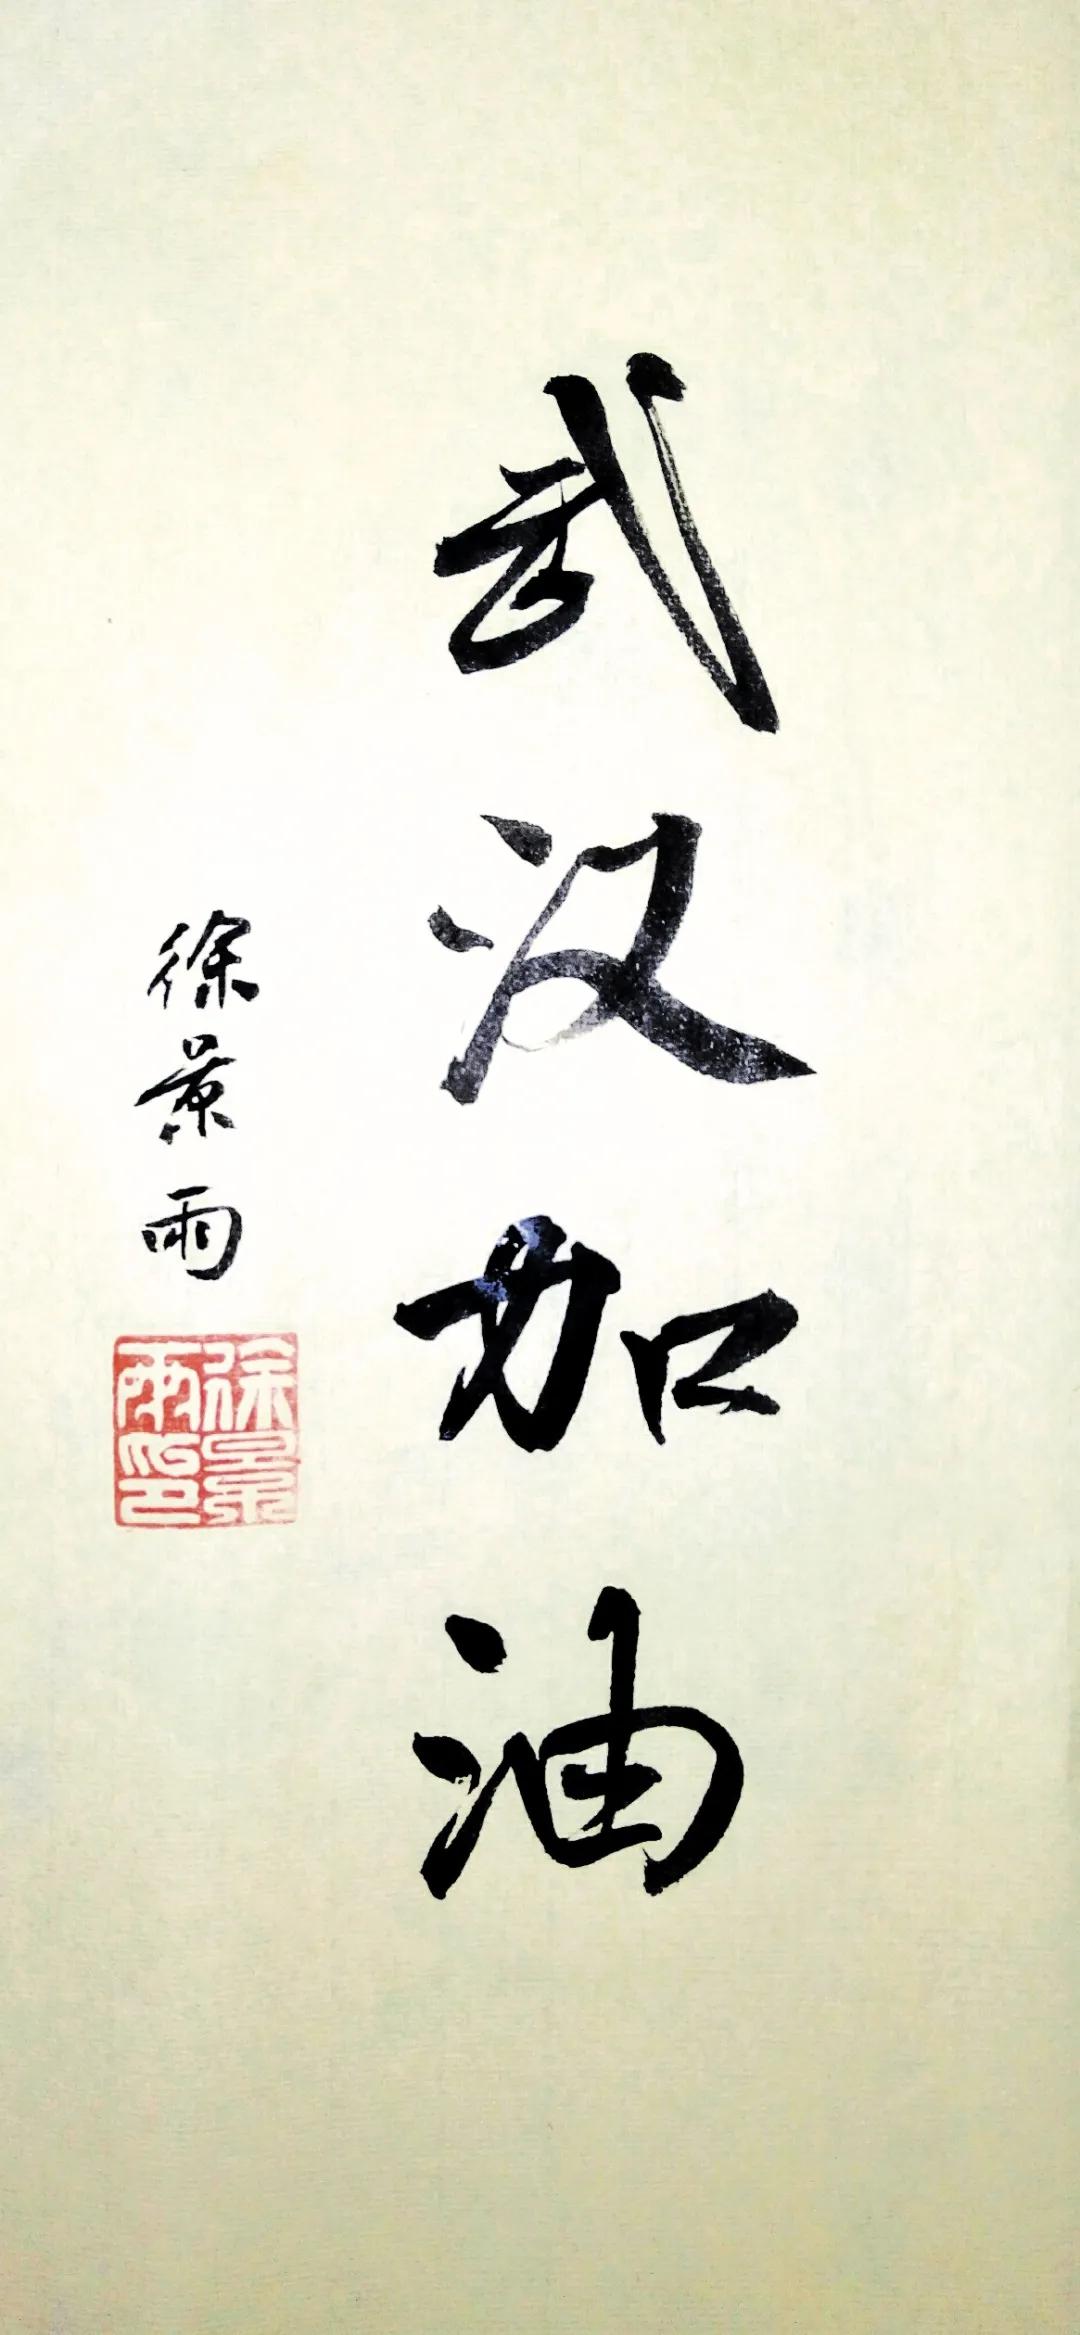 武汉加油
徐景雨
徐景雨印